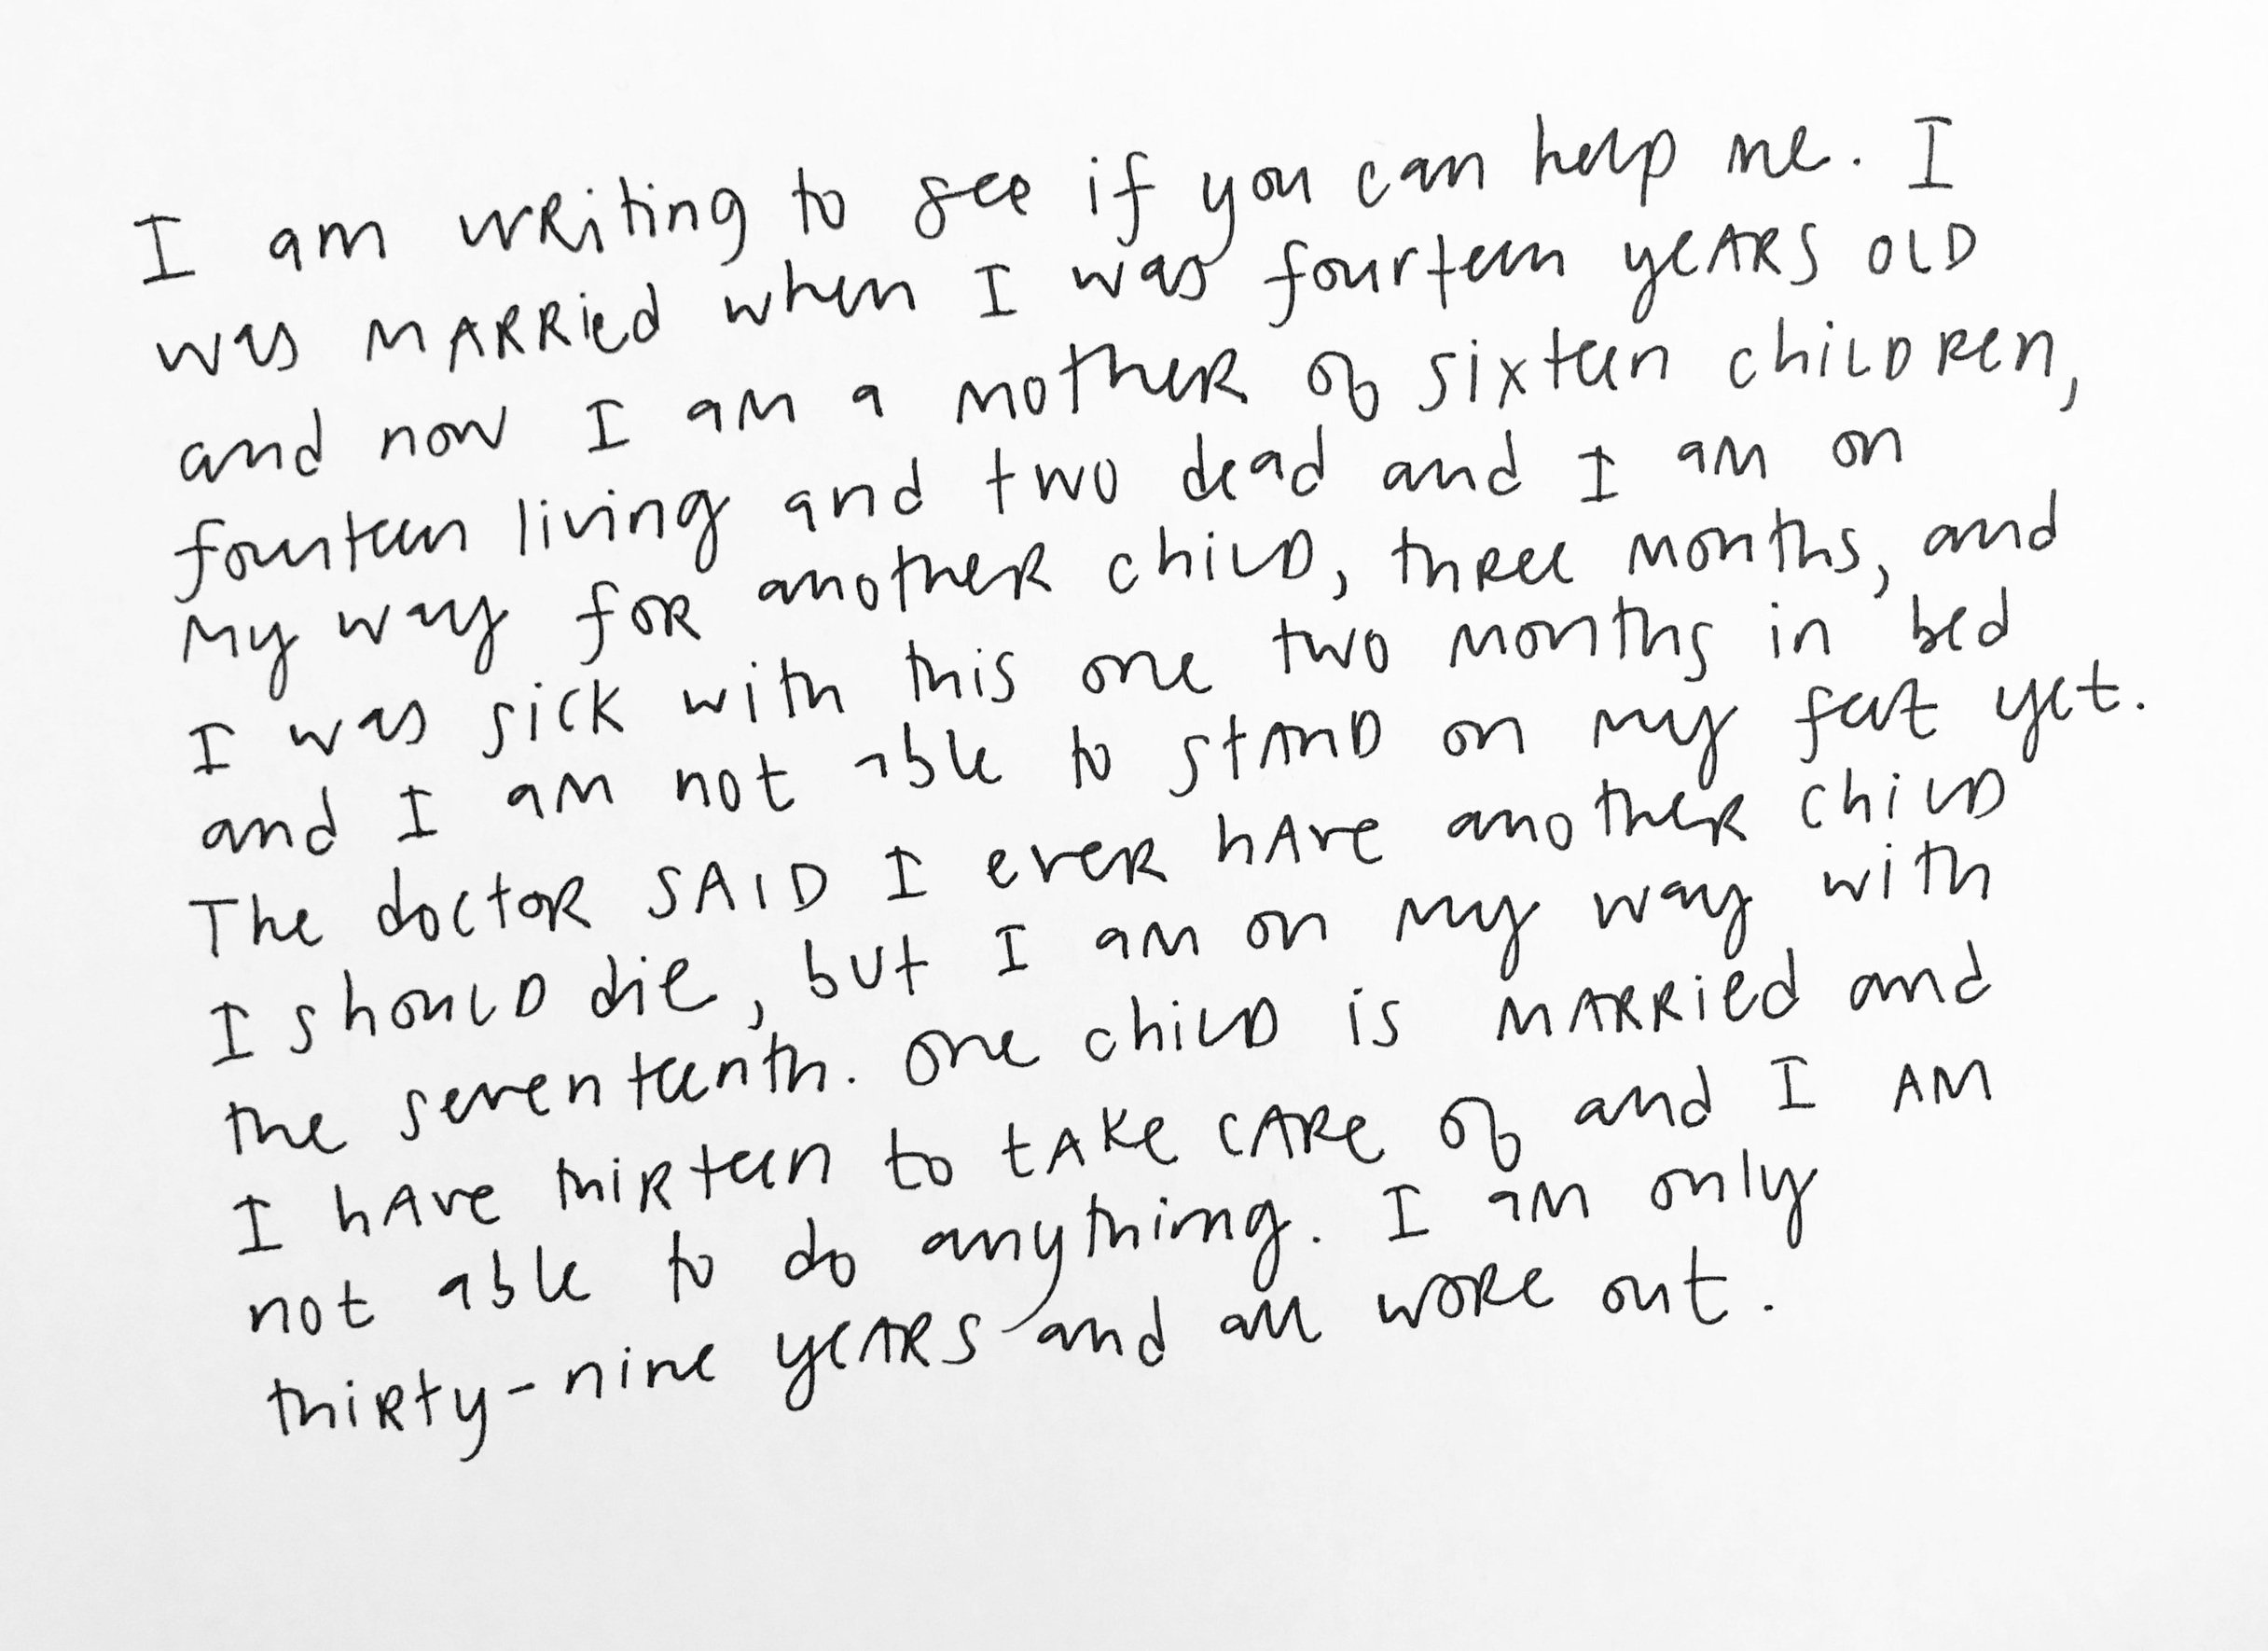 I am writing to see if you can help me. I
was married when I was fourteen years old
and now I am a mother of sixteen children,
fourteen living and two dead and I am on
my way for another child, three months, and
I was sick with this one two months in bed
and I am not able to stand on my feet yet.
The doctor said I ever have another child
I should die, but I am on my way with
the seventeenth. One child is married and
I have thirteen to take care of and I am
not able to do anything. I am only
thirty-nine years and all wore out.